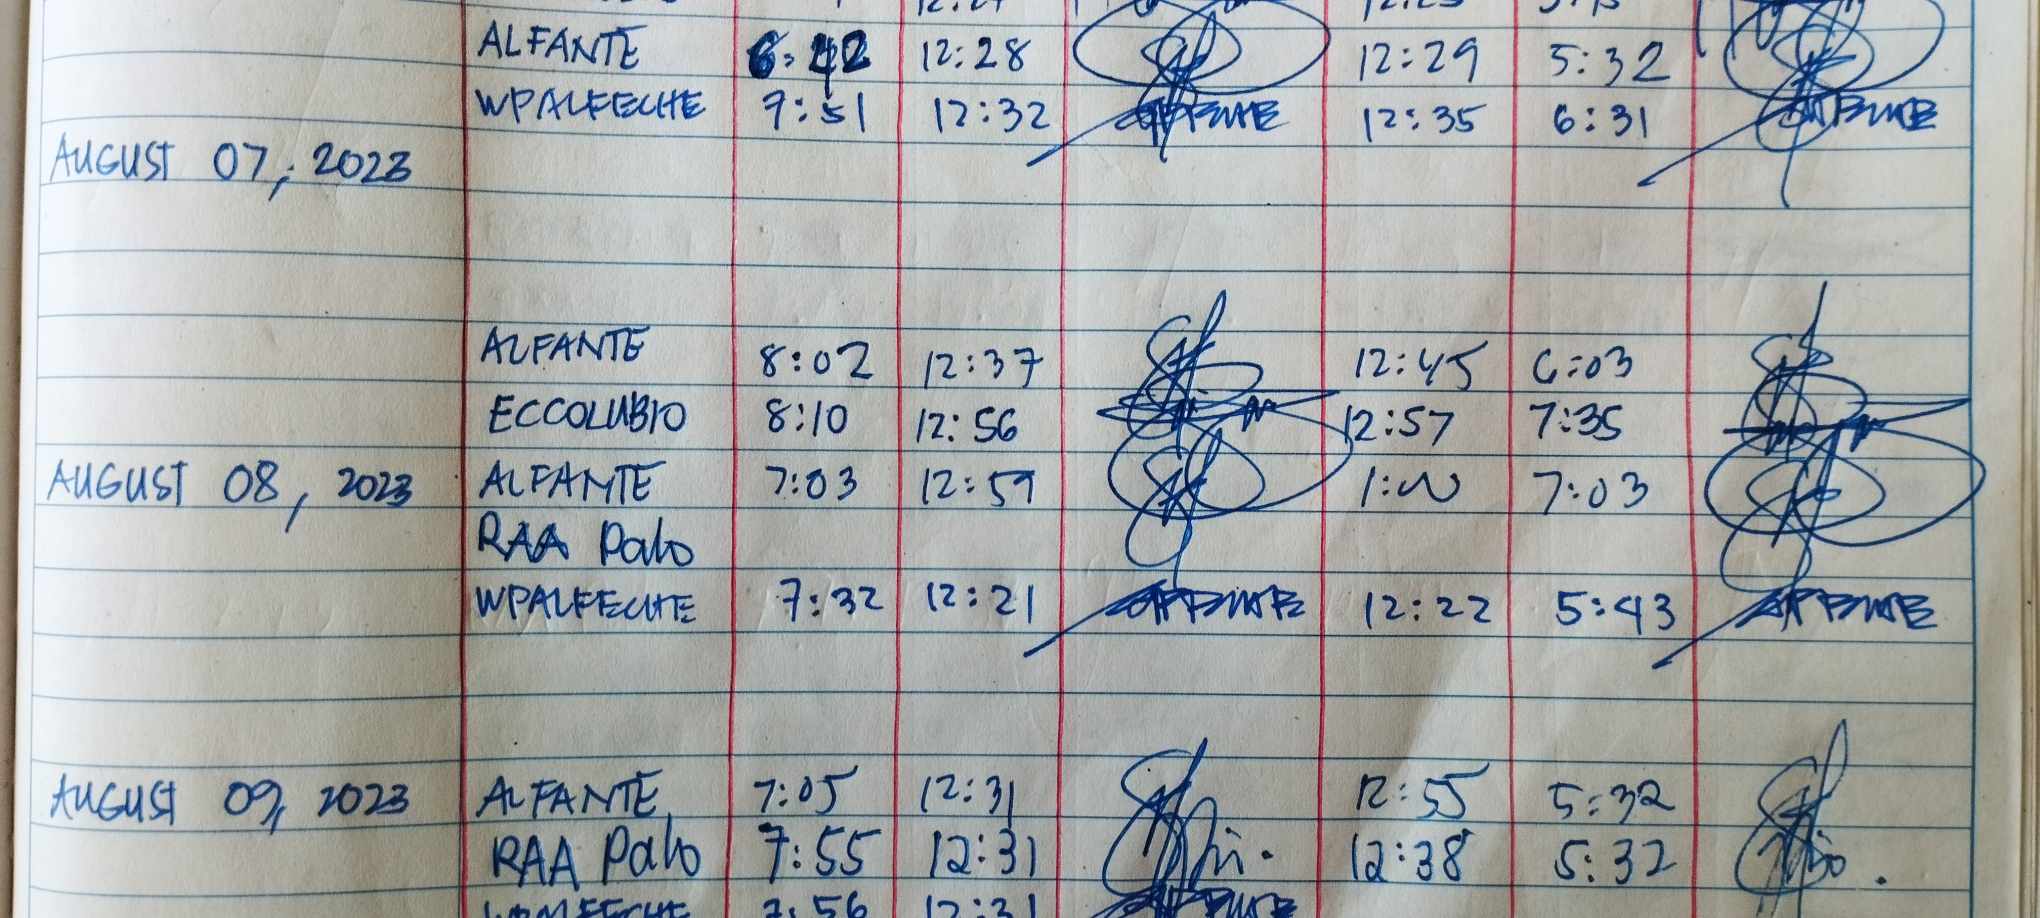 ALFANTE 12:28 12:29 5:32
WPALFECHE 7:51 12:32 12:35 6:31
AUGUST 07, 2023
ALFANTE 8:02 12:37 12:45 6:03
ECCOLUBIO 8:10 12:56 12:57 7:35
AUGUST 08, 2023 ALFANTE 7:03 12:59 1:00 7:03
RAA Palo
WPALFECHE 7:32 12:21 12:22 5:43
AUGUST 09, 2023 ALFANTE 7:05 12:31 12:55 5:32
RAA Palo 7:55 12:31 12:38 5:32
WPALFECHE 7:56 12:31